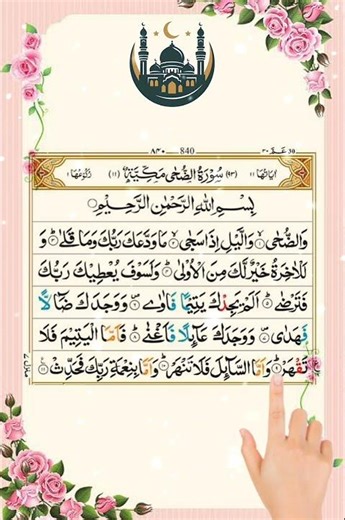 ٨٤٠ 840 عم ٣٠ 30
اٰيَاتُهَا ١١ (٩٣) سُوْرَةُ الضُّحٰى مَكِّيَّةٌ (١١) رُكُوْعُهَا ١
بِسْمِ اللّٰهِ الرَّحْمٰنِ الرَّحِيْمِ
وَالضُّحٰى ۙ وَالَّيْلِ اِذَا سَجٰى ۙ مَا وَدَّعَكَ رَبُّكَ وَمَا قَلٰى ؕ وَ
لَلْاٰخِرَةُ خَيْرٌ لَّكَ مِنَ الْاُوْلٰى ؕ وَلَسَوْفَ يُعْطِيْكَ رَبُّكَ
فَتَرْضٰى ؕ اَلَمْ يَجِدْكَ يَتِيْمًا فَاٰوٰى ۪ وَوَجَدَكَ ضَآلًّا
فَهَدٰى ۪ وَوَجَدَكَ عَآئِلًا فَاَغْنٰى ؕ فَاَمَّا الْيَتِيْمَ فَلَا
تَقْهَرْ ؕ وَاَمَّا السَّآئِلَ فَلَا تَنْهَرْ ؕ وَاَمَّا بِنِعْمَةِ رَبِّكَ فَحَدِّثْ